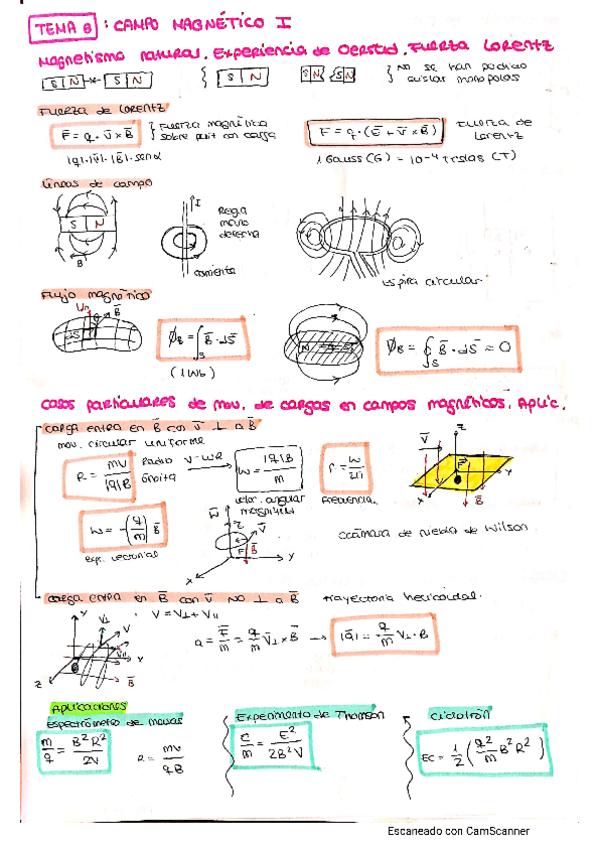 TEMA 8: CAMPO MAGNÉTICO I
Magnetismo natural. Experiencia de Oersted. Fuerza Lorentz
S N S N
S N
S N S N
No se han podido aislar monopolos
Fuerza de Lorentz
F̄ = q · v̄ × B̄
Fuerza magnética sobre part con carga
F = q · (Ē + v̄ × B̄)
Fuerza de Lorentz
|q|·|v̄|·|B̄|·senα
1 Gauss (G) = 10⁻⁴ Teslas (T)
Líneas de campo
S N
B
I
Regla mano derecha
corriente
espira circular
Flujo magnético
B̄
dS
Φ_B = ∫_S B̄ · dS̄
(1 Wb)
N
Φ_B = ∮_S B̄ · dS̄ = 0
Casos particulares de mov. de cargas en campos magnéticos. Aplic.
Carga entra en B̄ con v̄ ⊥ a B̄
mov. circular uniforme
R = mv / |q|B
Radio órbita
V = wR
w = |q|B / m
veloc. angular
f = w / 2π
frecuencia
v̄
z
F̄
y
x
B̄
w̄ = -(q/m) B̄
expr. vectorial
w̄
z
v̄
F
B̄
y
x
Cámara de niebla de Wilson
Carga entra en B̄ con v̄ NO ⊥ a B̄
trayectoria helicoidal.
v = v⊥ + v∥
a = F̄/m = q/m v̄⊥ × B̄ → |ā| = q/m v⊥ · B
y
v⊥
v
v∥
x
z
B̄
Aplicaciones
Espectrómetro de masas
m/q = B²R² / 2V
R = mv / qB
Experimento de Thomson
e/m = E² / 2B²V
Ciclotrón
Ec = 1/2 (q²/m B²R²)
Escaneado con CamScanner